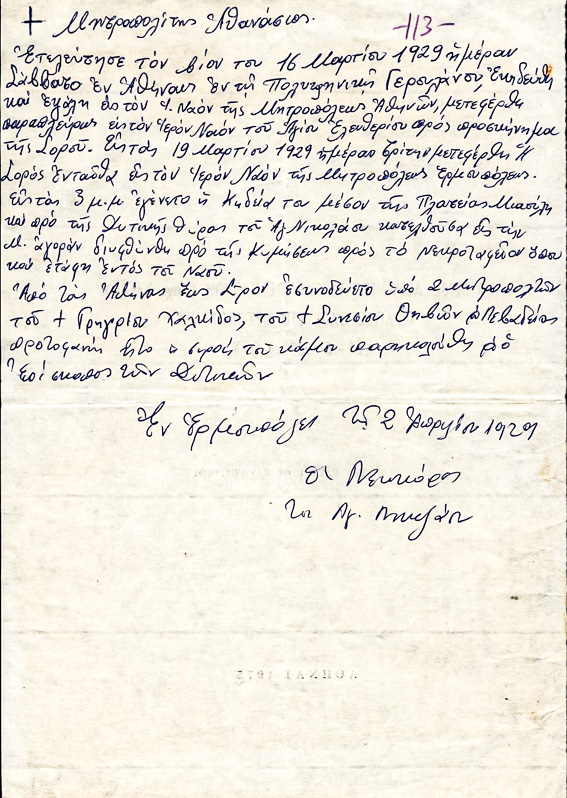 + Μητροπολίτης Ἀθανάσιος. -113-
Ἐτελεύτησε τὸν βίον του 16 Μαρτίου 1929 ἡμέραν
Σάββατο Ἐν Ἀθήναις ἐν τῇ Πολυκλινικῇ Γερουλάνου, Ἐκηδεύθη
καὶ ἐψάλη εἰς τὸν Ἱ. Ναὸν τῆς Μητροπόλεως Ἀθηνῶν, μετεφέρθη
παραπλεύρως εἰς τὸν Ἱερὸν Ναὸν τοῦ Ἁγίου Ἐλευθερίου πρὸς προσκύνημα
τῆς Σοροῦ. Εἰς τὰς 19 Μαρτίου 1929 ἡμέραν Τρίτην μετεφέρθη Ἡ
Σορὸς ἐνταῦθα εἰς τὸν Ἱερὸν Ναὸν τῆς Μητροπόλεως Ἑρμουπόλεως.
Εἰς τὰς 3 μ.μ ἐγένετο ἡ Κηδεία του μέσον τῆς Πλατείας Μιαούλη
καὶ πρὸ τῆς Δυτικῆς θύρας τοῦ Ἁγ. Νικολάου κατελθοῦσα εἰς τὴν
Μ. ἀγορὰν διευθύνθη πρὸ τῆς Κοιμήσεως πρὸς τὸ Νεκροταφεῖον ὅπου
καὶ ἐτάφη ἐντὸς τοῦ Ναοῦ.
Ἀπὸ τὰς Ἀθήνας ἕως Σῦρον ἐσυνοδεύετο ὑπὸ 2 Μητροπολιτῶν
τοῦ + Γρηγρίου Χαλκίδος, τοῦ + Συνεσίου Θηβῶν & Λεβαδείας
πρωτοφανὴς ἦτο ἡ συρροὴ τοῦ κόσμου παρηκολούθη & ὁ
Ἐπίσκοπος τῶν Δυτικῶν
Ἐν Ἑρμουπόλει τῇ 2 Ἀπριλίου 1929
Οἱ Νεωκόροι
τοῦ Ἁγ. Νικολάου
ΑΘΗΝΑΙ 1975